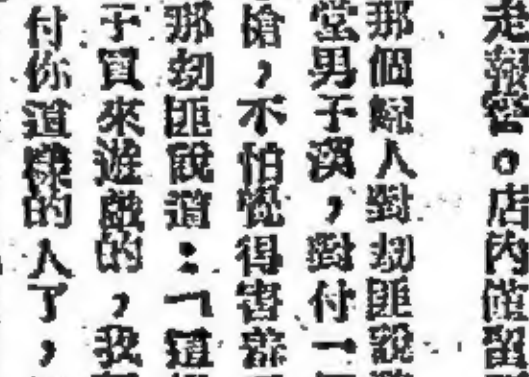 走報警。店內僅留
那個婦人對刼匪說
堂男子漢，對付一
槍，不怕覺得害羞
那刼匪說道：「這
子買來遊戲的，我
付你這樣的人了，